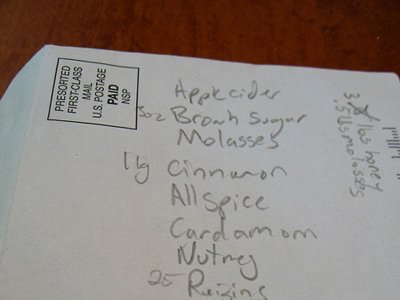 PRESORTED
FIRST-CLASS
MAIL
U.S. POSTAGE
PAID
NSP
Applecider
5oz Brown Sugar
Molasses
11g Cinnumon
All Spice
Cardamom
Nutmeg
25 Reizins
lbs honey
.5 lbs molasses